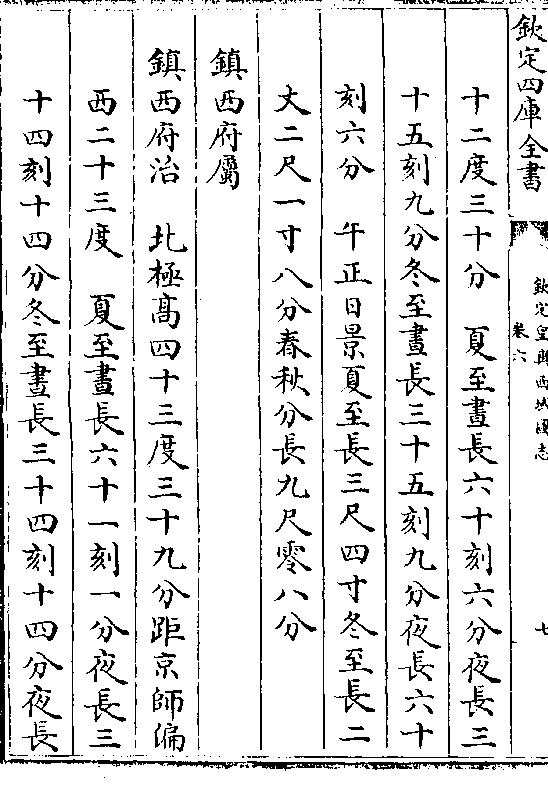 欽定四庫全書
欽定皇輿西域圖志
卷六
七
十二度三十分　夏至晝長六十刻六分夜長三
十五刻九分冬至晝長三十五刻九分夜長六十
刻六分　午正日景夏至長三尺四寸冬至長二
丈二尺一寸八分春秋分長九尺零八分
鎮西府屬
鎮西府治　北極高四十三度三十九分距京師偏
西二十三度　夏至晝長六十一刻一分夜長三
十四刻十四分冬至晝長三十四刻十四分夜長